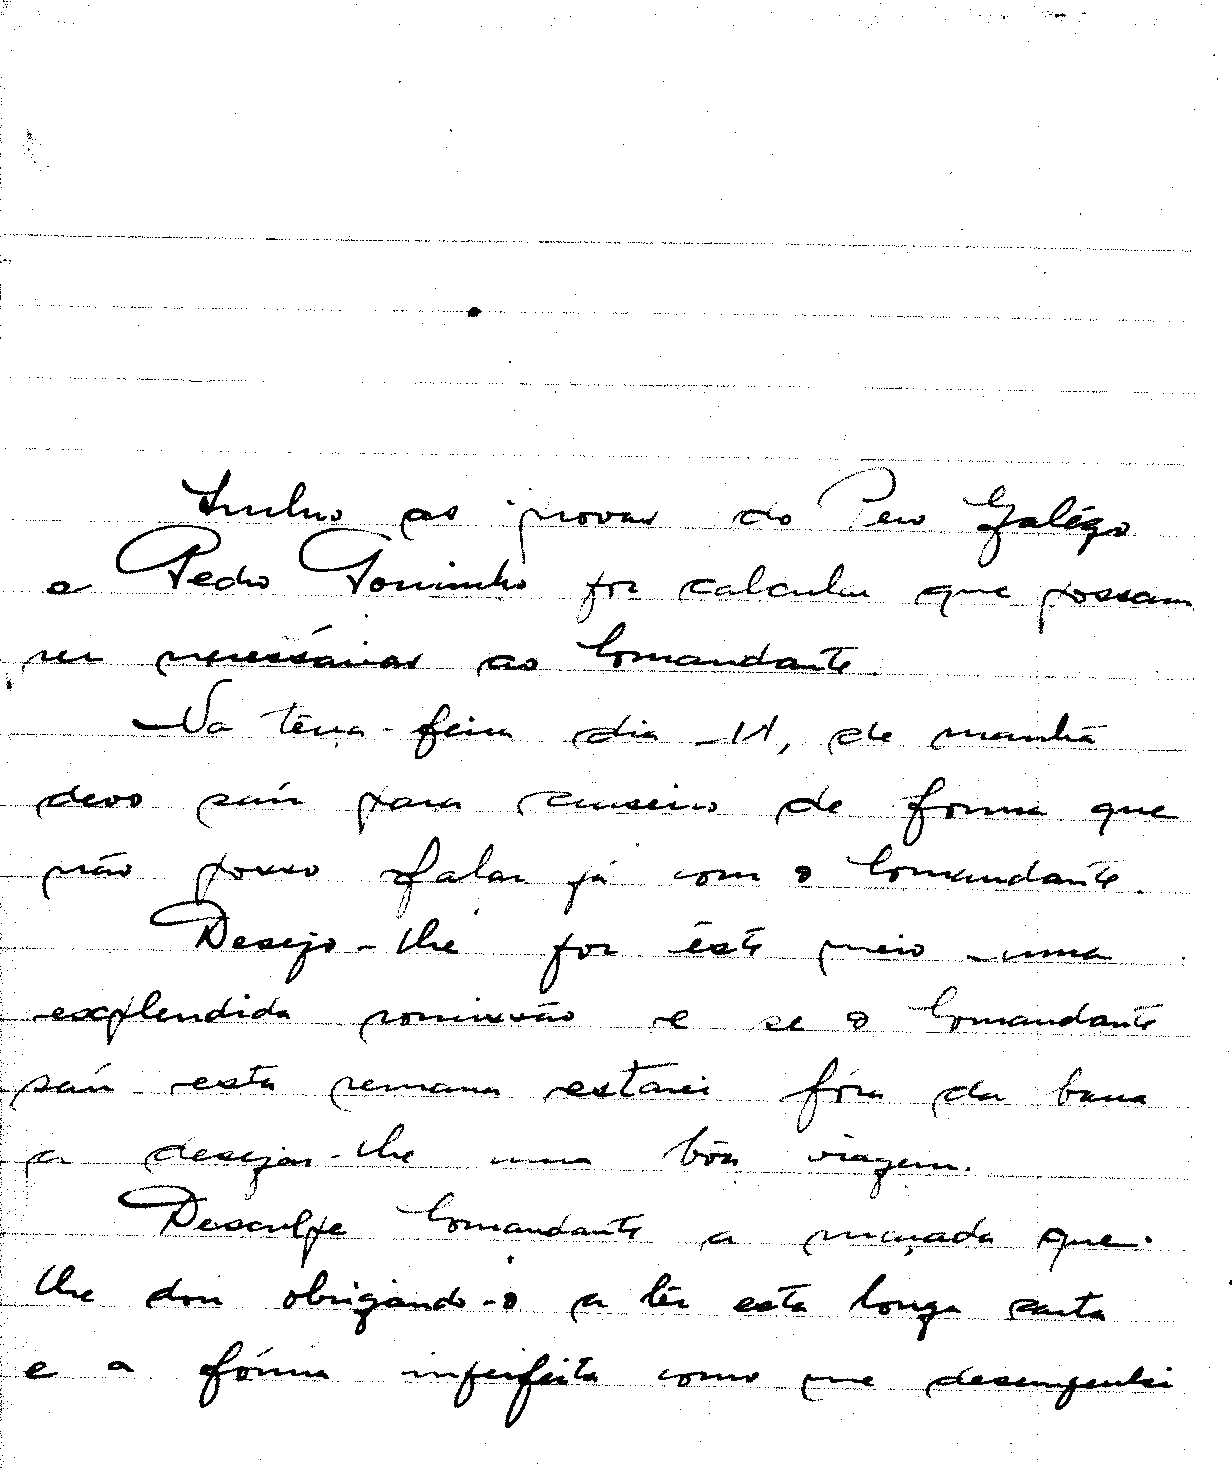 Junho as provas do Pero Galégo
e Pedro for calcular que possam
ser necessárias ao Comandante.
Na terça-feira dia 11, de manhã
devo saír para cruseiro de forma que
não posso falar já com o Comandante.
Desejo-lhe por êste meio uma
esxplendida comissão e se o Comandante
saír esta semana estarei fóra da barra
a desejar-lhe uma bôa viagem.
Desculpe Comandante a maçada que
lhe dou obrigando-o a lêr esta longa carta
e a fórma imperfeita como me desempenhei